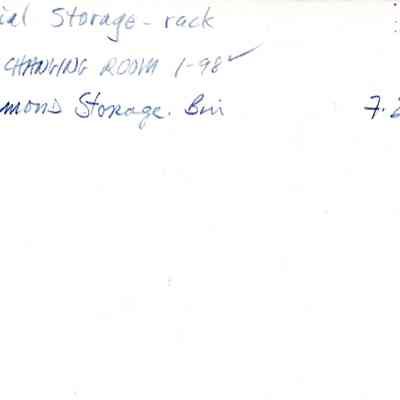 ial Storage-rack
CHANGING ROOM 1-98 ✓
mond Storage. Bin 7.2